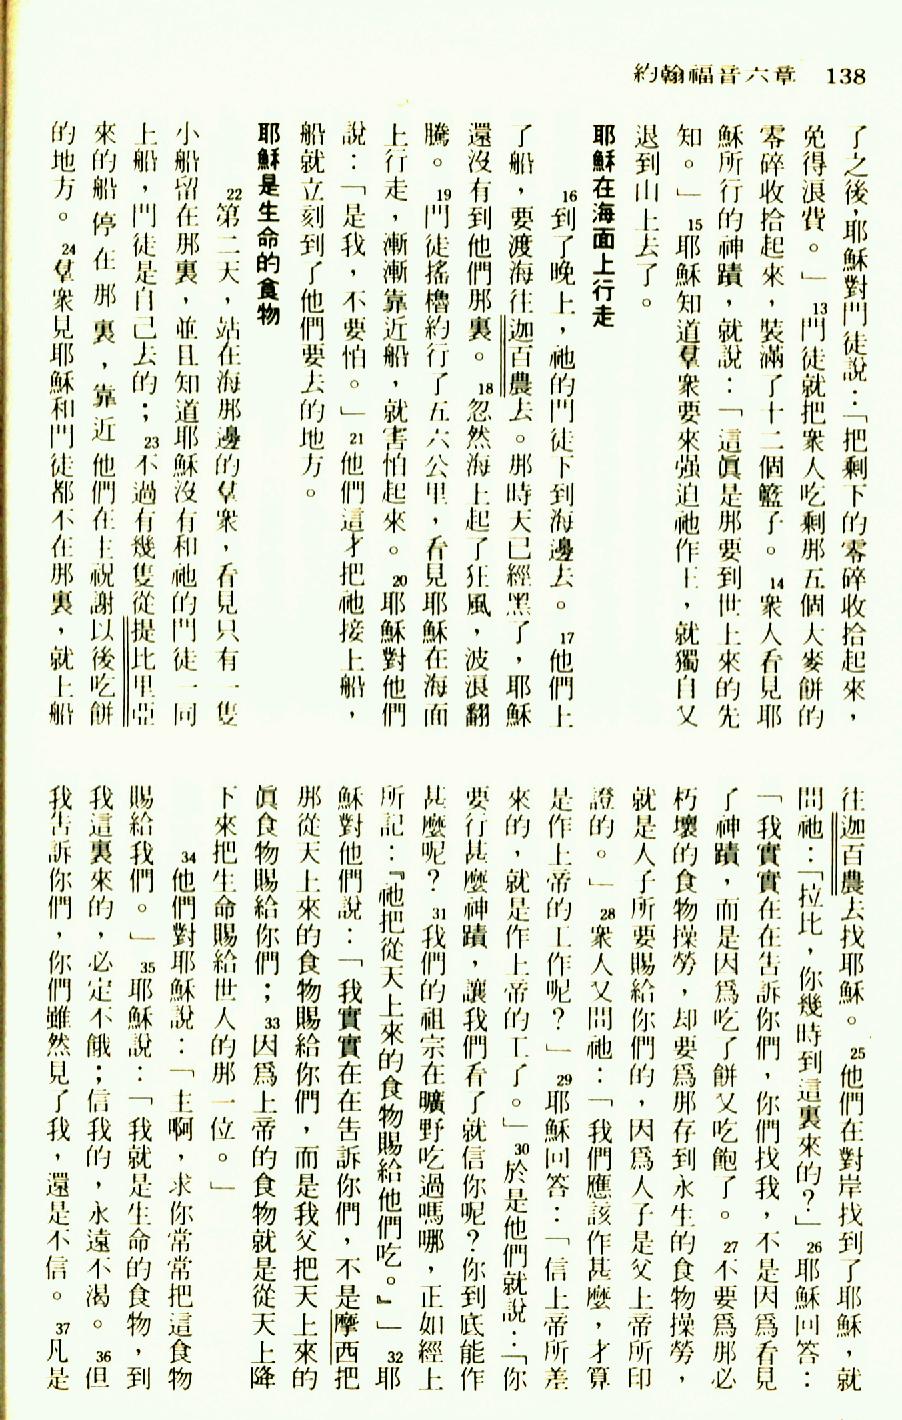 約翰福音六章 138
了之後，耶穌對門徒說：「把剩下的零碎收拾起來，
免得浪費。」13門徒就把衆人吃剩那五個大麥餅的
零碎收拾起來，裝滿了十二個籃子。14衆人看見耶
穌所行的神蹟，就說：「這眞是那要到世上來的先
知。」15耶穌知道羣衆要來强迫祂作王，就獨自又
退到山上去了。
耶穌在海面上行走
16到了晚上，祂的門徒下到海邊去。17他們上
了船，要渡海往迦百農去。那時天已經黑了，耶穌
還沒有到他們那裏。18忽然海上起了狂風，波浪翻
騰。19門徒搖櫓約行了五六公里，看見耶穌在海面
上行走，漸漸靠近船，就害怕起來。20耶穌對他們
說：「是我，不要怕。」21他們這才把祂接上船，
船就立刻到了他們要去的地方。
耶穌是生命的食物
22第二天，站在海那邊的羣衆，看見只有一隻
小船留在那裏，並且知道耶穌沒有和祂的門徒一同
上船，門徒是自己去的；23不過有幾隻從提比里亞
來的船停在那裏，靠近他們在主祝謝以後吃餅
的地方。24羣衆見耶穌和門徒都不在那裏，就上船
往迦百農去找耶穌。25他們在對岸找到了耶穌，就
問祂：「拉比，你幾時到這裏來的？」26耶穌回答：
「我實實在在告訴你們，你們找我，不是因爲看見
了神蹟，而是因爲吃了餅又吃飽了。27不要爲那必
朽壞的食物操勞，却要爲那存到永生的食物操勞，
就是人子所要賜給你們的，因爲人子是父上帝所印
證的。」28衆人又問祂：「我們應該作甚麼，才算
是作上帝的工作呢？」29耶穌回答：「信上帝所差
來的，就是作上帝的工了。」30於是他們就說：「你
要行甚麼神蹟，讓我們看了就信你呢？你到底能作
甚麼呢？31我們的祖宗在曠野吃過嗎哪，正如經上
所記：『祂把從天上來的食物賜給他們吃。』」32耶
穌對他們說：「我實實在在告訴你們，不是摩西把
那從天上來的食物賜給你們，而是我父把天上來的
眞食物賜給你們；33因爲上帝的食物就是從天上降
下來把生命賜給世人的那一位。」
34他們對耶穌說：「主啊，求你常常把這食物
賜給我們。」35耶穌說：「我就是生命的食物，到
我這裏來的，必定不餓；信我的，永遠不渴。36但
我告訴你們，你們雖然見了我，還是不信。37凡是